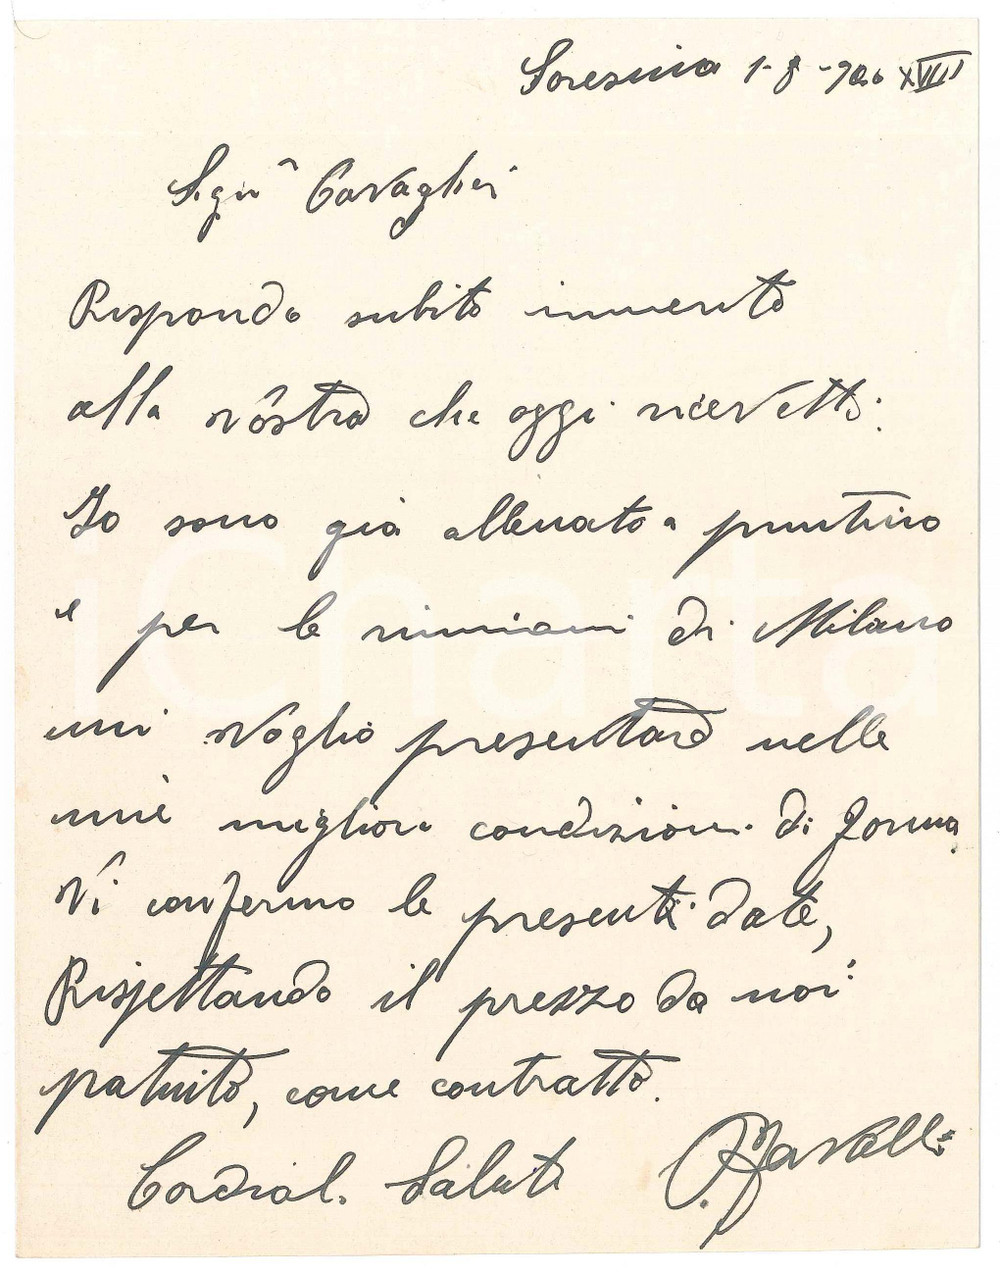 Soresina 1-8-940 XVIII
Sigr Cavaglieri
Rispondo subito in merito
alla vostra che oggi ricevetti:
Io sono già allenato a puntino
e per le riunioni di Milano
mi voglio presentare nelle
mie migliori condizioni di forma.
Vi confermo le presenti date,
Rispettando il prezzo da noi
patuito, come contratto.
Cordiali Saluti
iCharta